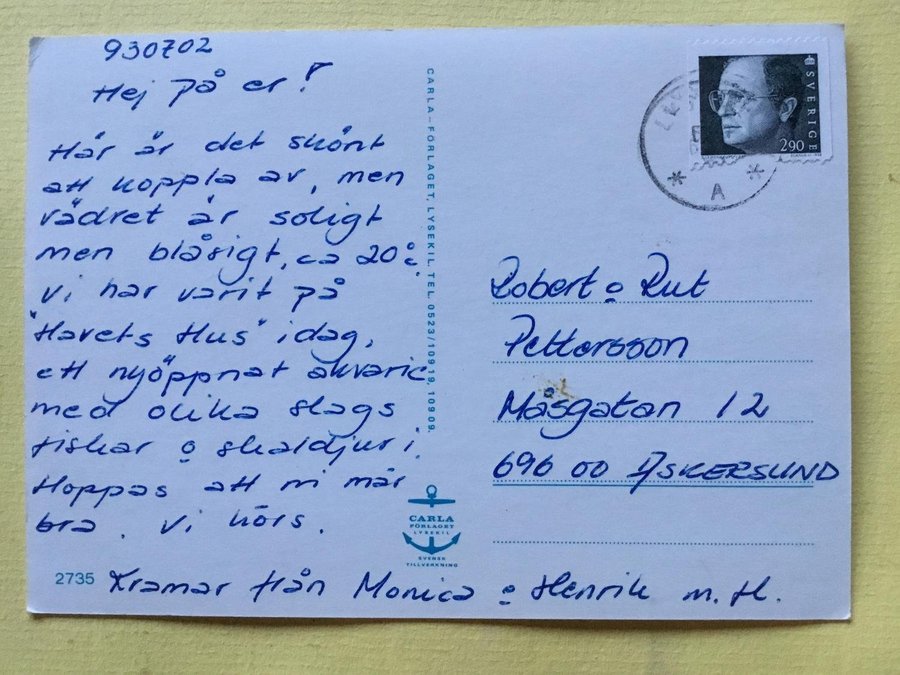 930702
Hej på er!
Här är det skönt
att koppla av, men
vädret är soligt
men blåsigt, ca 20°C
Vi har varit på
"Havets Hus" idag,
ett nyöppnat akvarie
med olika slags
fiskar o skaldjur i.
Hoppas att ni mår
bra. Vi hörs.
Kramar från Monica o Henrik m. fl.
2735
CARLA-FÖRLAGET, LYSEKIL TEL. 0523/109 19, 109 09.
CARLA
FÖRLAGET
LYSEKIL
SVENSK
TILLVERKNING
SVERIGE
290
* A *
Robert o Rut
Pettersson
Måsgatan 12
696 00 ASKERSUND